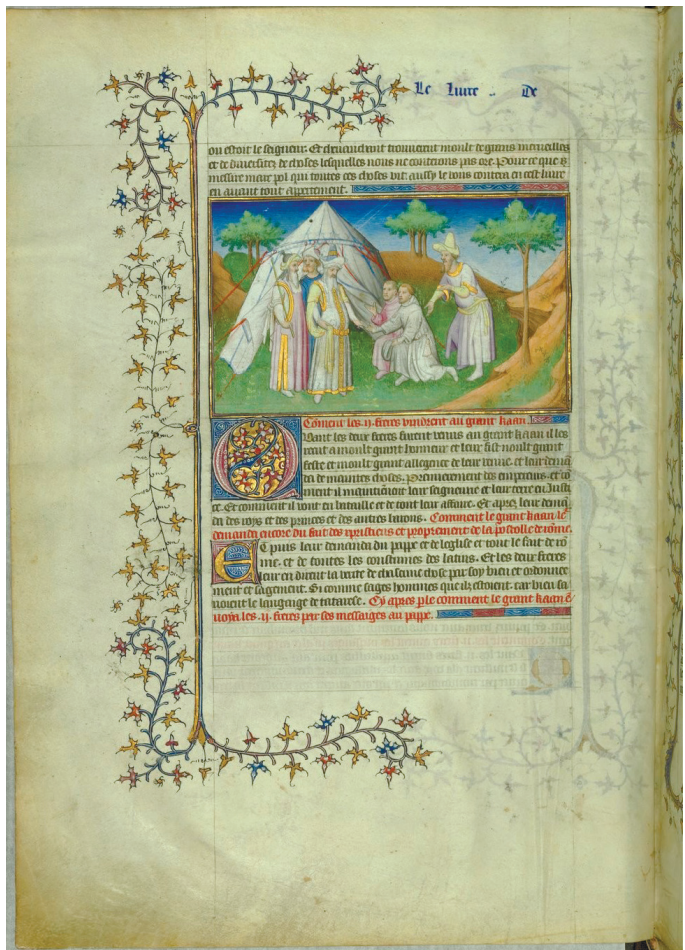 Le liure .. De
ou estoit le seigneur. Et cheuauchant trouuerent moult de grans merueilles
et de diuersitez de choses lesquelles nous ne conterons pas ore. Pour ce que
messire marc pol qui toutes ces choses vit aussy le vous contera en cest liure
en auant tout apertement.
Coment les .ij. freres vindrent au grant kaan.
Quant les deux freres furent venus au grant kaan il les
recut a moult grant honneur et leur fist moult grant
feste et moult grant allegrece de leur venue. et leur demā
da de maintes choses. Premierement des empereurs. et cō
ment il maintiōnoit leur seignourie et leur terre en Justi
ce. Et comment il vont en bataille et de tout leur affaire. Et apres leur demā
da des roys et des princes et des autres barons. Comment le grant kaan le
demanda encore du fait des xpristiens et proprement de la postolle de rōme.
Et puis leur demanda du pape et de leglise et tout le fait de rō
me. et de toutes les coustumes des latins. Et les deux freres
leur en dirent la verite de chascune chose par soy bien et ordonnee
ment et sagement. Si comme sages hommes que ilz estoient. car bien sa
uoient le langaige de tatarese. Cy apres ple comment le grant kaan ē
uoya les .ij. freres pur ses messaiges au pape.